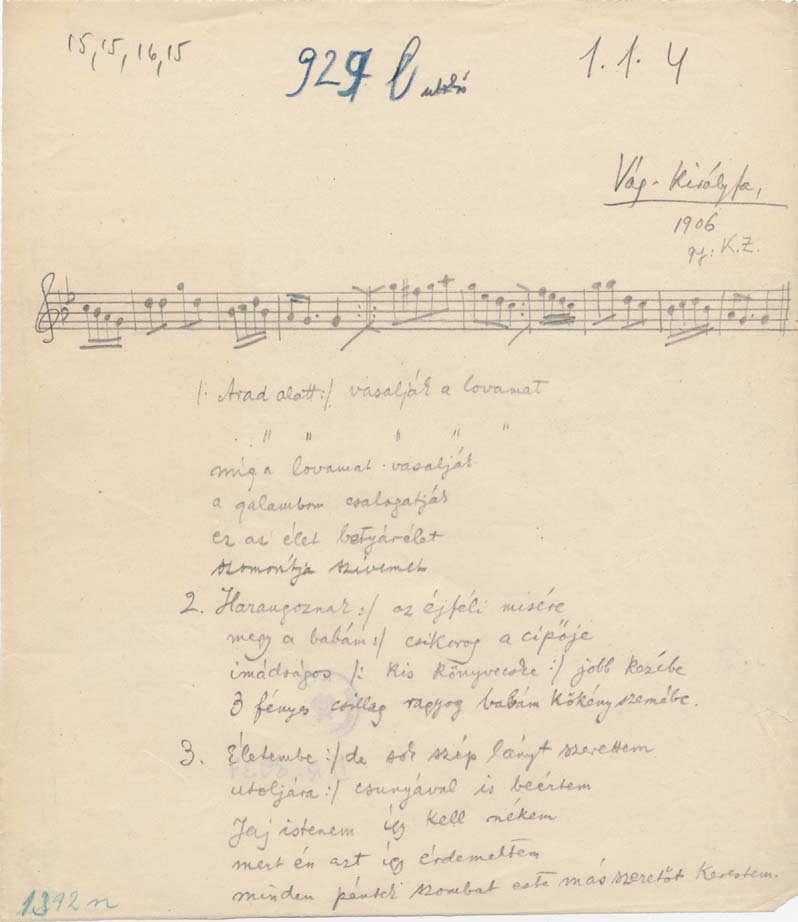 15, 15, 16, 15
929 l utolsó
1. 1. 4
Vág-Királyfa,
1906
gy: K.Z.
/: Arad alatt :/ vasalják a lovamat
" " " " "
míg a lovamat vasalják
a galambom csalogatják
ez az élet betyárélet
szomorítja szívemet
2. Harangoznak :/ az éjféli misére
megy a babám :/ csikorog a cipője
imádságos /: kis könyvecske :/ jobb kezébe
3 fényes csillag ragyog babám kökény szemébe.
3. Életembe :/ de sok szép lányt szerettem
utoljára :/ csunyával is beértem
Jaj istenem így kell nékem
mert én azt így érdemeltem
minden péntek szombat este más szeretőt kerestem.
1392 n